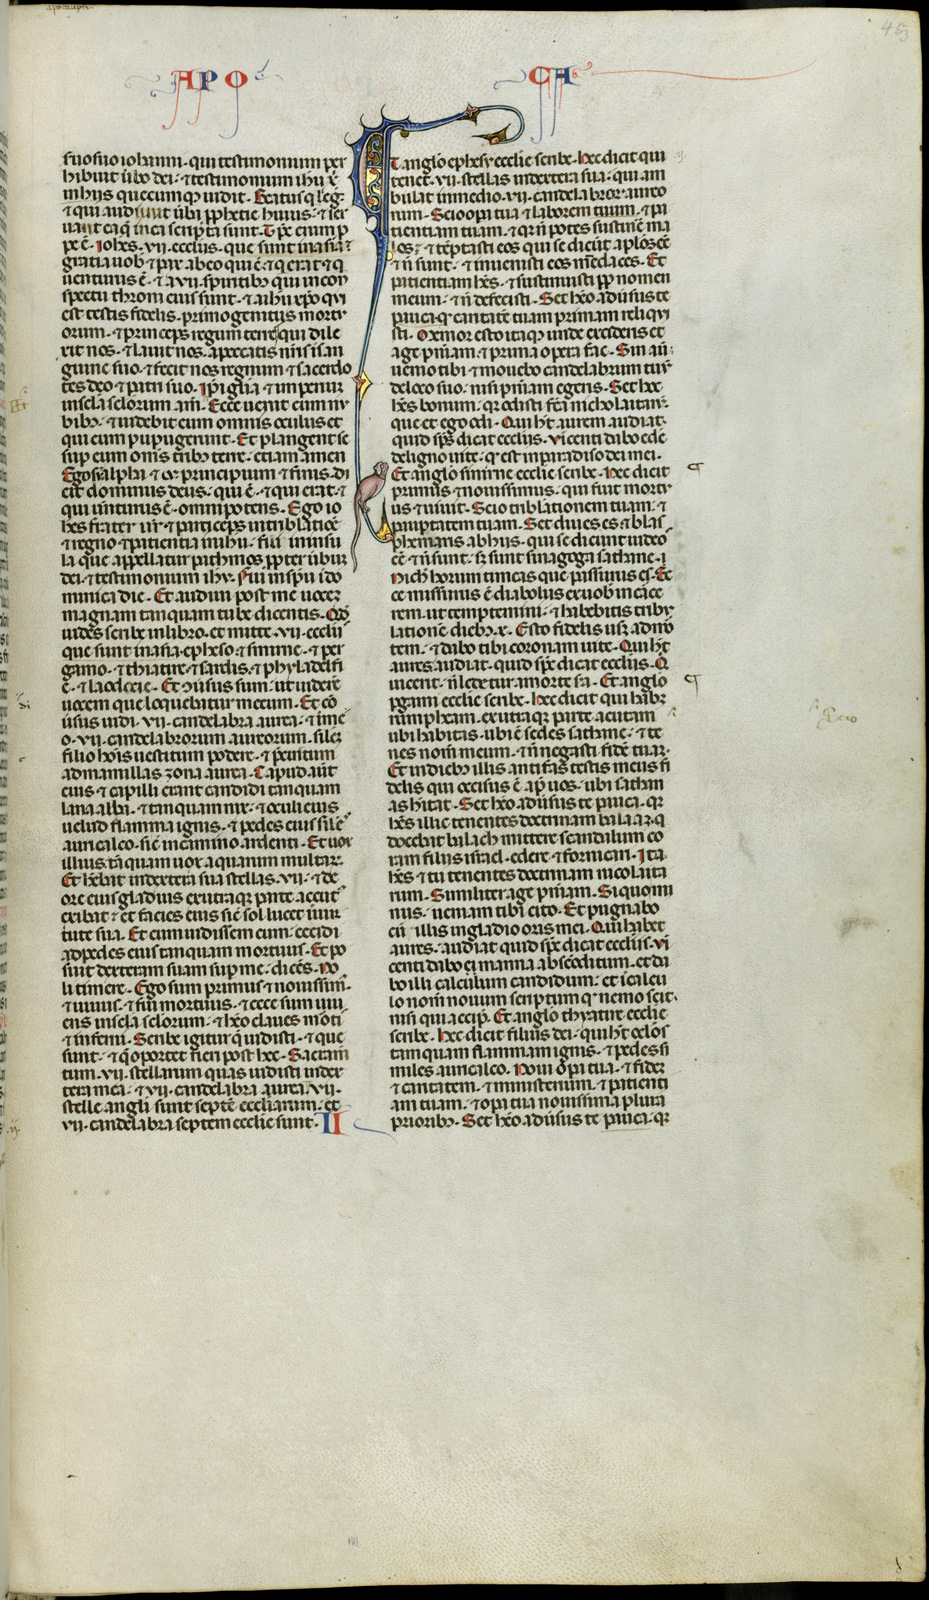 APO CA
suo suo iohanni· qui testimonium per
hibuit ubo dei· ⁊ testimonium ihu x̄
in hiis quecumq̄ uidit· Beatus q̄ leḡ·
⁊ qui audiunt ūba p̄phetie huius· ⁊ ser
uant ea q̄ in ea scripta sunt· T̄pe enim p
pe ē· Iohes· vii· ecclīis· que sunt in asia·
gratia uob̄ ⁊ pax ab eo qui ē· ⁊ q̄ erat ⁊ q̄
uenturus ē· ⁊ a vii· spiritib̄ qui in con
spectu throni eius sunt· ⁊ a ihū xp̄o qui
est testis fidelis· primogenitus mortu
orum· ⁊ princeps regum terre qui dile
xit nos· ⁊ lauit nos· a peccatis nr̄is i san
guine suo· ⁊ fecit nos regnum ⁊ sacerdo
tes deo ⁊ patri suo· Ip̄i gl̄ia ⁊ imperiū
in sc̄la sc̄lorum am̄· Ecce uenit cum nu
bib̄· ⁊ uidebit eum omnis oculus et
qui eum pupugerunt· Et plangent se
sup eum om̄s trib̄ terre· etiam amen
Ego sū alpha ⁊ ω· principium ⁊ finis· di
cit dominus deus· qui ē· ⁊ qui erat· ⁊
qui uenturus ē· omnipotens· Ego io
hēs frater ur̄ ⁊ particeps in tribulatiōe
⁊ regno ⁊ patientia in ihū· fui in insu
la que appellatur pathmos ppter ūbum
dei· ⁊ testimonium ihu· Fui in sp̄u ī do
minica die· Et audiui post me uocem
magnam tanquam tube dicentis· Qd̄
uides scribe in libro· et mitte· vii· ecclīis
que sunt in asia· epheso· ⁊ smirne· ⁊ per
gamo· ⁊ thiatire ⁊ sardis· ⁊ phyladelfi
ē· ⁊ laodocie· Et ꝯuersus sum· ut uiderē
uocem que loquebatur mecum· Et cō
uersus uidi· vii· candelabra aurea· ⁊ ī me
o· vii· candelabrorum aureorum· silem
filio hoīs uestitum podere· ⁊ p̄cinctum
ad mamillas zona aurea· Caput aūt
eius ⁊ capilli erant candidi tanquam
lana alba· ⁊ tanquam nix· ⁊ oculi eius
uelud flamma ignis· ⁊ pedes eius sil̄e
auricalco· sic̄ in camino ardenti· Et uox
illius· tāquam uox aquarum multar̄·
Et habebat in dextera sua stellas· vii· ⁊ de
ore eius gladius ex utraq̄ parte acut̄
exibat· ⁊ et facies eius sic̄ sol lucet in uir
tute sua· Et cum uidissem eum· cecidi
ad pedes eius tanquam mortuus· Et po
suit dexteram suam sup me· dicēs· No
li timere· Ego sum primus ⁊ nouissim̄·
⁊ uiuus· ⁊ fui mortuus· ⁊ ecce sum uiu
ens in sc̄la sc̄lorum· ⁊ h̄eo claues moti
⁊ inferni· Scribe igitur q̄ uidisti· ⁊ que
sunt· ⁊ q̄ oportet fieri post hec· Sacram
tum· vii· stellarum quas uidisti in dex
tera mea· ⁊ vii· candelabra aurea· vii·
stelle· angli sunt septē eccliarum· et
vii· candelabra septem ecclie sunt· II
Et anglo ephesi ecclie scribe· Hec dicit qui
tenet· vii· stellas in dextera sua· qui am
bulat in medio· vii· candelabror̄ aureo
rum· Scio op̄a tua ⁊ laborem tuum· ⁊ pa
tientiam tuam· ⁊ qr̄ n̄ potes sustinē ma
los· ⁊ tēptasti eos qui se dicūt aplos eē
⁊ n̄ sunt· ⁊ inuenisti eos mēdaces· Et
patientiam hēs· ⁊ sustinuisti pp̄ nomen
meum· ⁊ n̄ defecisti· Set h̄eo aduersus te
pauca· q̄ caritatē tuam primam reliqui
sti· Memor esto itaq̄ unde excideris et
age pn̄iam· ⁊ prima opera fac· Sin aū·
uenio tibi ⁊ mouebo candelabrum tuū
de loco suo· nisi pn̄iam egeris· Set hoc
hēs bonum· qr̄ odisti fc̄a nicholaitar̄·
que et ego odi· Qui ht̄ aurem audiat·
quid sp̄s dicat ecclīis· Vicenti dabo edē
de ligno uite· q̄ est in paradiso dei mei·
Et anglo smirne ecclie scribe· Hec dicit
primus ⁊ nouissimus· qui fuit mortu
us ⁊ uiuit· Scio tribulationem tuam· ⁊
paupertatem tuam· Set diues es ⁊ blas
phemaris ab hiis· qui se dicunt iudeos
eē ⁊ n̄ sunt· s̄ sunt sinagoga sathane·
Nich̄ horum timeas que passurus es· Ec
ce missurus ē diabolus ex uob̄ in carce
rem· ut temptemini· ⁊ habebitis tribu
lationē dieb̄· x· Esto fidelis usq̄ ad mor
tem· ⁊ dabo tibi coronam uite· Qui ht̄
aures audiat· quid sp̄s dicat ecclīis· Q̄
uicerit· n̄ ledetur a morte scd̄a· Et anglo
pgami ecclie scribe· Hec dicit qui hab̄
rumpheam· ex utraq̄ parte acutam
ubi habitas· ubi ē sedes sathane· ⁊ te
nes nom̄ meum· ⁊ n̄ negasti fidē meā·
Et in dieb̄ illis antifas testis meus fi
delis qui occisus ē ap̄ uos· ubi sathan
as hitat· Set h̄eo aduersus te pauca· qr̄
hēs illic tenentes doctrinam balaam· q̄
docebat balach mittere scandalum co
ram filiis israel· edere ⁊ fornicari· Ita
hēs ⁊ tu tenentes doctrinam nicolaita
rum· Similiter age pn̄iam· Si quomi
nus· ueniam tibi cito· Et pugnabo
cū illis in gladio oris mei· Qui habet
aures· audiat quid sp̄s dicat ecclīis· Vi
centi dabo ei manna absconditum· et da
bo illi calculum candidum· et ī calcu
lo nom̄ nouum scriptum q̄ nemo scit·
nisi qui accip̄· Et anglo thyatire ecclie
scribe· Hec dicit filius dei· qui ht̄ oc̄los
tamquam flammam ignis· ⁊ pedes si
miles auricalco· Noui op̄a tua· ⁊ fidē
⁊ caritatem· ⁊ ministerium· ⁊ patienti
am tuam· ⁊ opa tua nouissima plura
priorib̄· Set h̄eo aduersus te pauca· qr̄